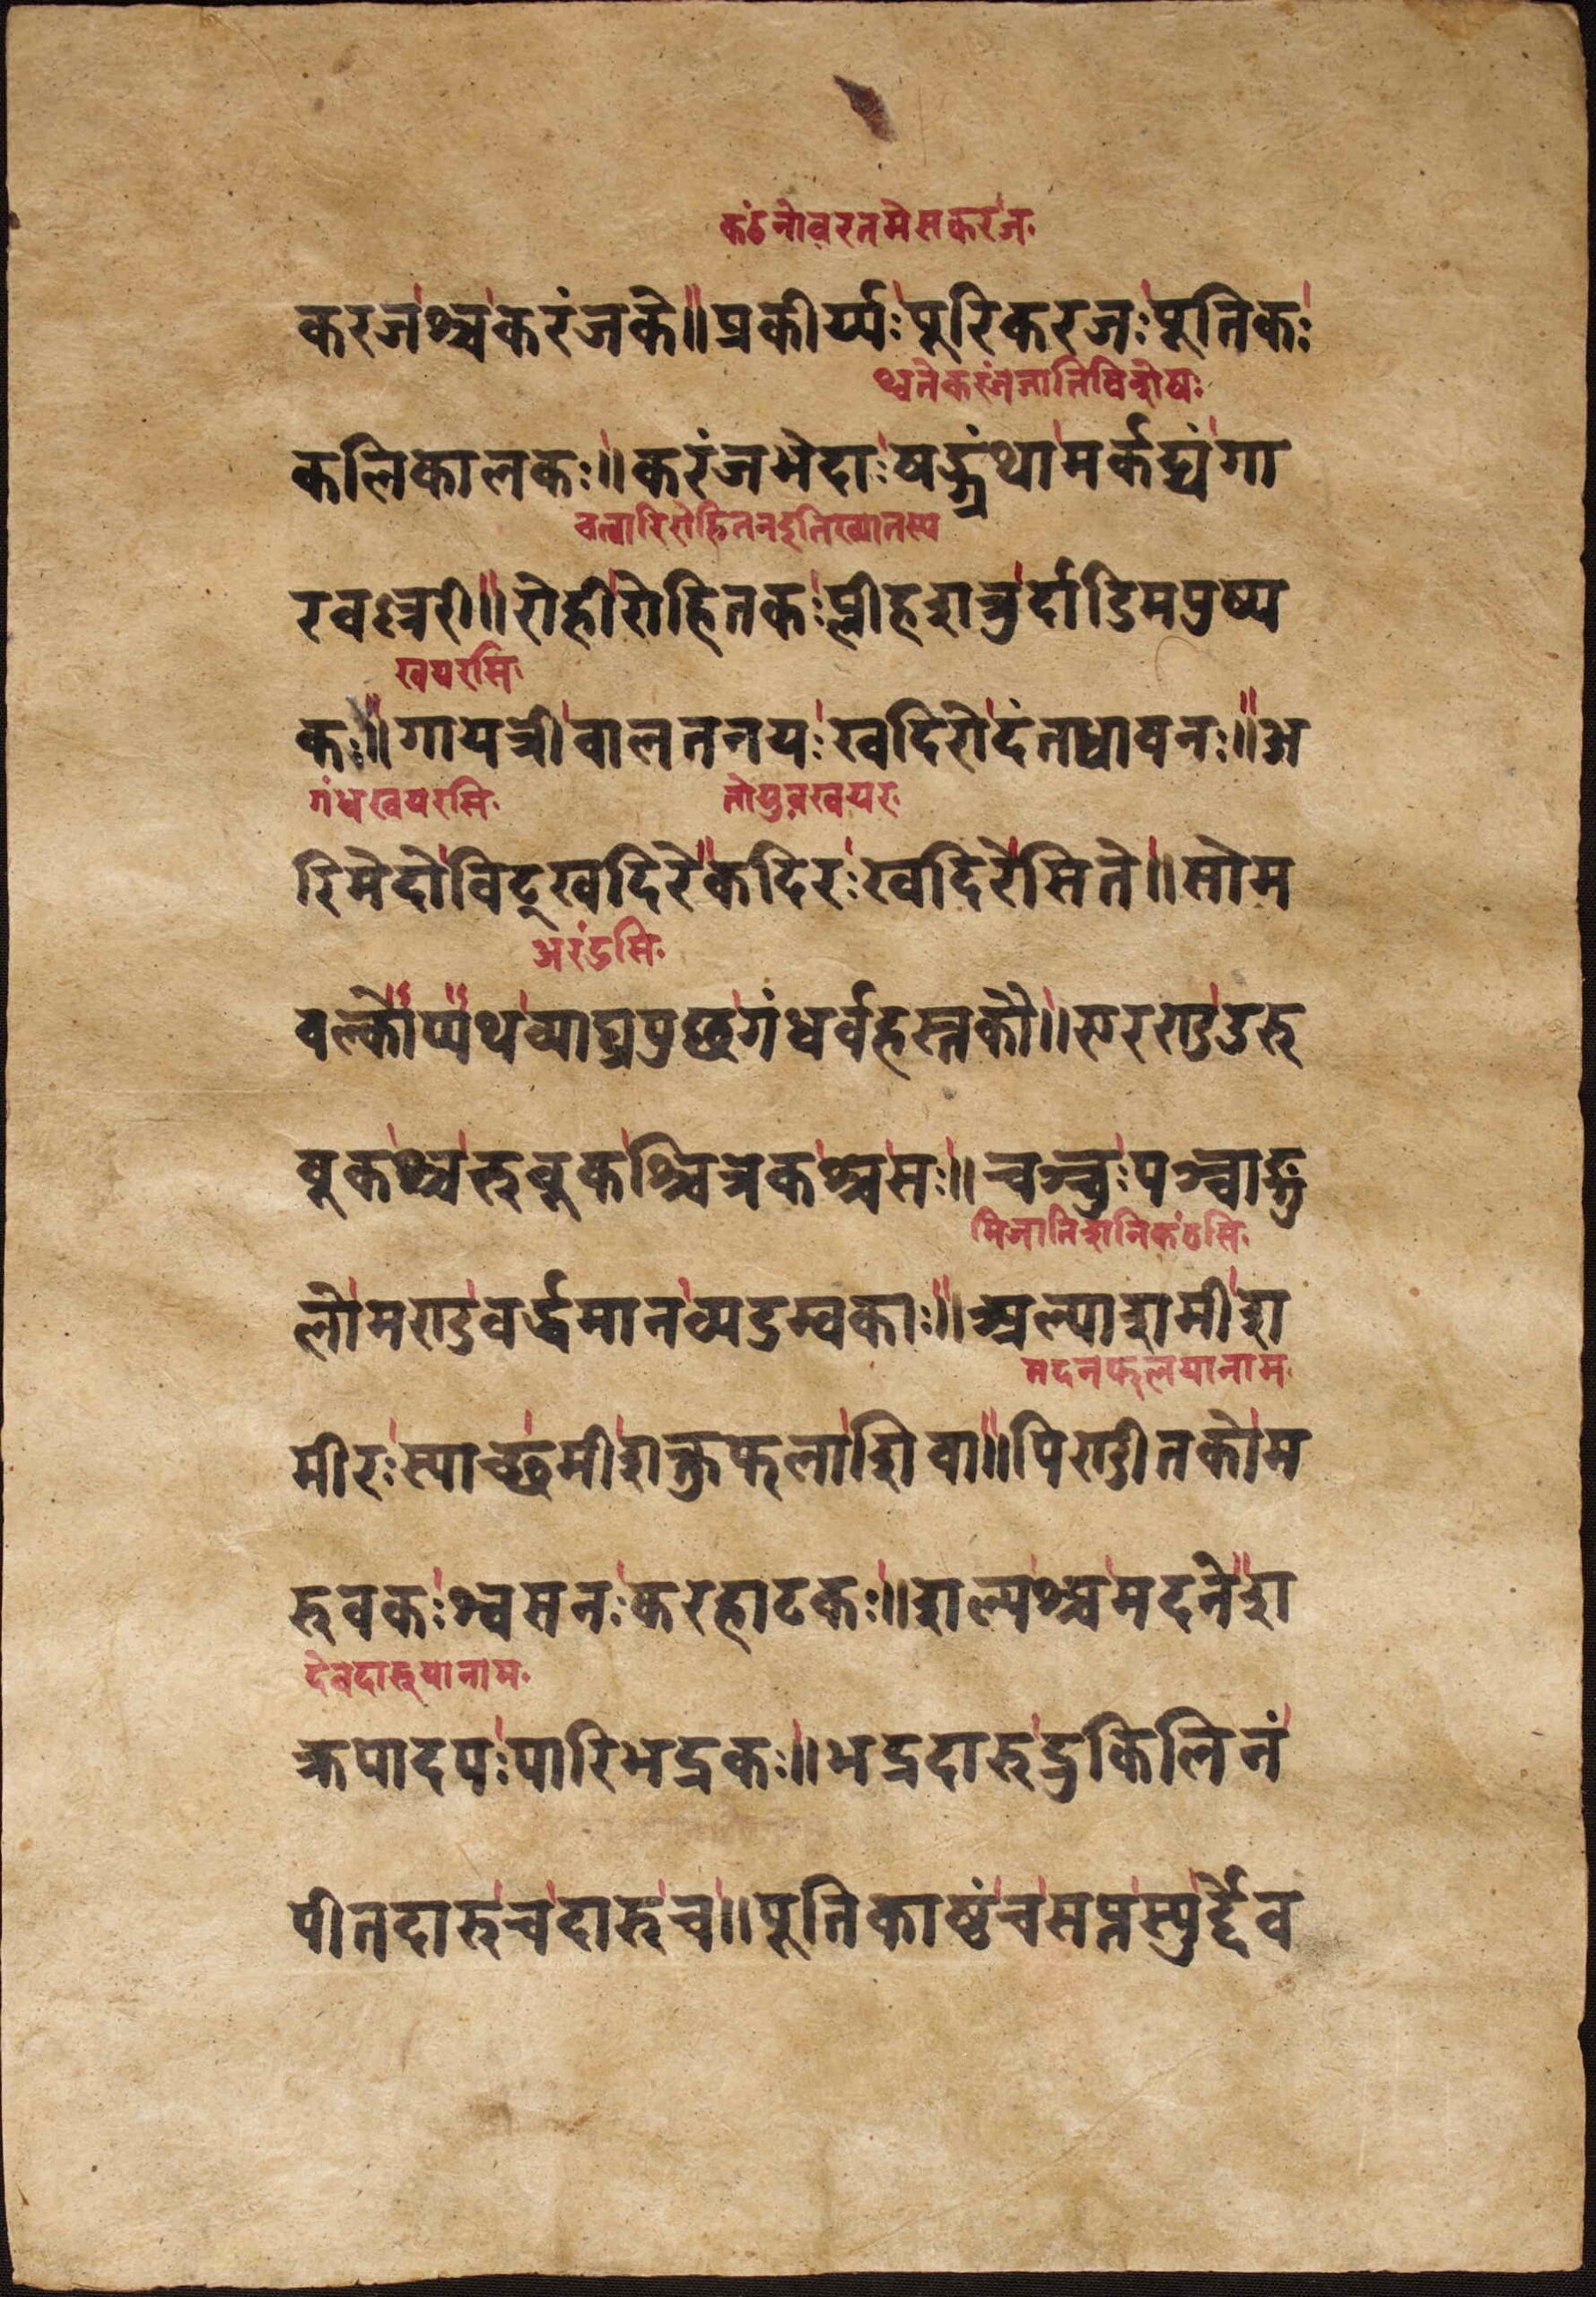 कठंनोवरतमेसकरंज॰
करजश्चकरंजके॥प्रकीर्य्यःपूरिकरजःपूतिकः
थ्वतेकरंजजातिविशेषः
कलिकालकः॥करंजभेदाःषड्ग्रंथामर्कट्यंगा
चत्वारिरोहितनद्रतिख्यातस्य
रवल्लरी॥रोहीरोहितकःप्लीहशत्रुर्दाडिमपुष्प
खयरसि॰
कः॥गायत्रीवालतनयःखदिरोदंतधावनः॥अ
गंधखयरसि॰ तोयुवखयर॰
रिमेदोविट्खदिरेकदिरःखदिरेसिते॥सोम
अरंडसि॰
वल्कोप्यथव्याघ्रपुच्छगंधर्वहस्तकौ॥एरराडउरु
वुकश्चरुवुकश्चित्रकश्चसः॥चञ्चुःपञ्चाङ्गु
मिजातिशनिकंठसि॰
लोमराडवर्द्धमानव्यडम्वकाः॥अल्पाशमीश
मदनफलयानाम॰
मीरःस्याच्छमीशक्तुफलाशिवा॥पिराडीतकोम
रुवकःश्वसनःकरहाटकः॥शल्यश्चमदनेश
देवदारुयानाम॰
क्रपादपःपारिभद्रकः॥भद्रदारुद्रकिलिनं
पीतदारुचदारुच॥पूतिकाष्ठंचसप्तस्युर्द्देव